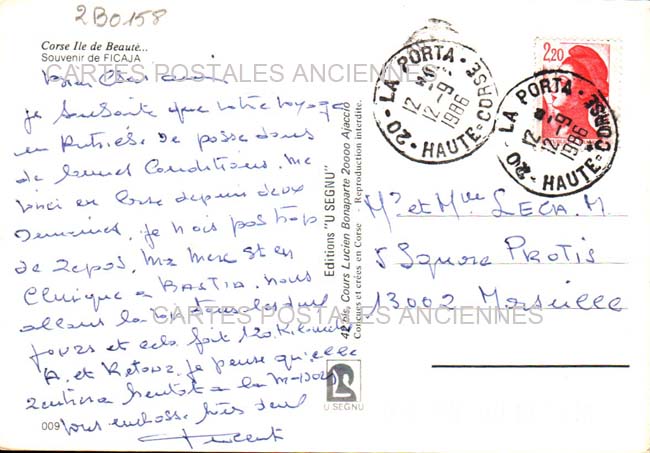 2B0158
Corse Ile de Beauté...
Souvenir de FICAJA
CARTES POSTALES ANCIENNES
je souhaite que votre voyage
en
de bonnes conditions. Me
voici en Corse depuis deux
semaines, je n'ai pas trop
de repos. Ma mère est en
Clinique a BASTIA. Nous
allons la voir tous les deux
jours et cela fait 120 kilomètres
A. et Retour. Je pense qu'elle
rentrera bientôt a la maison
Vous embrasse très fort
Vincent
009
Editions "U SEGNU"
42 bis, Cours Lucien Bonaparte 20000 Ajaccio
Conçues et crées en Corse - Reproduction interdite.
U.SEGNU
2,20
20 - LA PORTA - HAUTE=CORSE
12 -9
1986
20 - LA PORTA - HAUTE=CORSE
12 -9
1986
Mr et Mme LECA. M.
5 Square PROTIS
13002 Marseille
CARTES POSTALES ANCIENNES